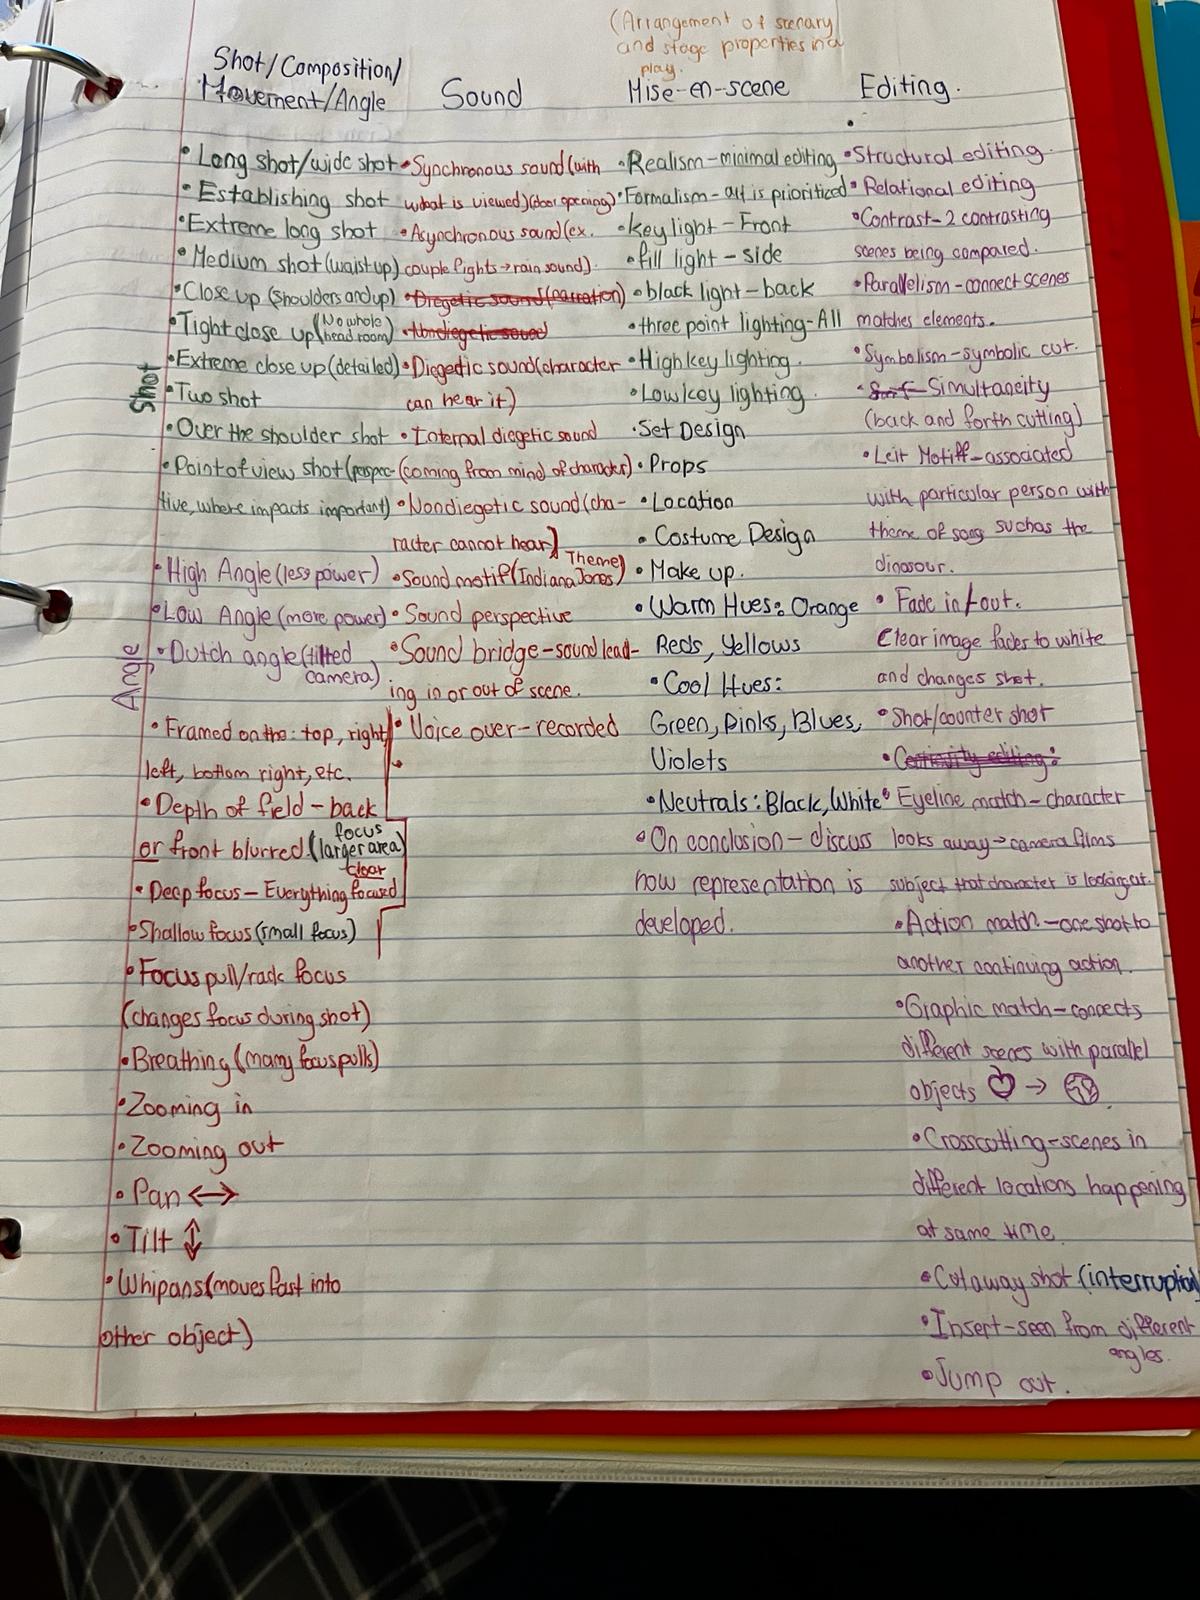 (Arrangement of scenary
and stage properties in a
play.
Shot/Composition/
Movement/Angle
Sound
Mise-en-scene
Editing.
Shot
• Long shot/wide shot
• Establishing shot
• Extreme long shot
• Medium shot (waist up)
• Close up (shoulders and up)
• Tight close up (No whole
head room)
• Extreme close up (detailed)
• Two shot
• Over the shoulder shot
• Point of view shot (perspec-
tive, where impacts important)
Angle
• High Angle (less power)
• Low Angle (more power)
• Dutch angle (tilted
camera)
• Framed on the: top, right,
left, bottom right, etc.
• Depth of field - back
or front blurred (larger area
focus
clear)
• Deep focus - Everything focused
• Shallow focus (small focus)
• Focus pull/rack focus
(changes focus during shot)
• Breathing (many focus pulls)
• Zooming in
• Zooming out
• Pan ↔
• Tilt ↕
• Whipans (moves fast into
other object)
• Synchronous sound (with
what is viewed) (door opening)
• Asynchronous sound (ex.
couple fights → rain sound)
• Diegetic sound (narration)
• Nondiegetic sound
• Diegetic sound (character
can hear it)
• Internal diegetic sound
(coming from mind of character)
• Nondiegetic sound (cha-
racter cannot hear)
• Sound motif (Indiana Jones Theme)
• Sound perspective
• Sound bridge - sound lead-
ing in or out of scene.
• Voice over - recorded
• Realism - minimal editing
• Formalism - art is prioritized
• key light - Front
• fill light - side
• black light - back
• three point lighting - All
• High key lighting.
• Low key lighting.
• Set Design
• Props
• Location
• Costume Design
• Make up.
• Warm Hues: Orange
Reds, Yellows
• Cool Hues:
Green, Pinks, Blues,
Violets
• Neutrals: Black, White
• On conclusion - discuss
how representation is
developed.
• Structural editing.
• Relational editing
• Contrast - 2 contrasting
scenes being compared.
• Parallelism - connect scenes
matches elements.
• Symbolism - symbolic cut.
• Simultaneity
(back and forth cutting)
• Leit Motiff - associated
with particular person with
theme of song such as the
dinasour.
• Fade in/out.
Clear image fades to white
and changes shot.
• Shot/counter shot
• Continuity editing:
• Eyeline match - character
looks away → camera films
subject that character is looking at.
• Action match - one shot to
another continuing action.
• Graphic match - conects
different scenes with parallel
objects →
• Crosscutting - scenes in
different locations happening
at same time.
• Cutaway shot (interruption)
• Insert - seen from different
angles.
• Jump out.